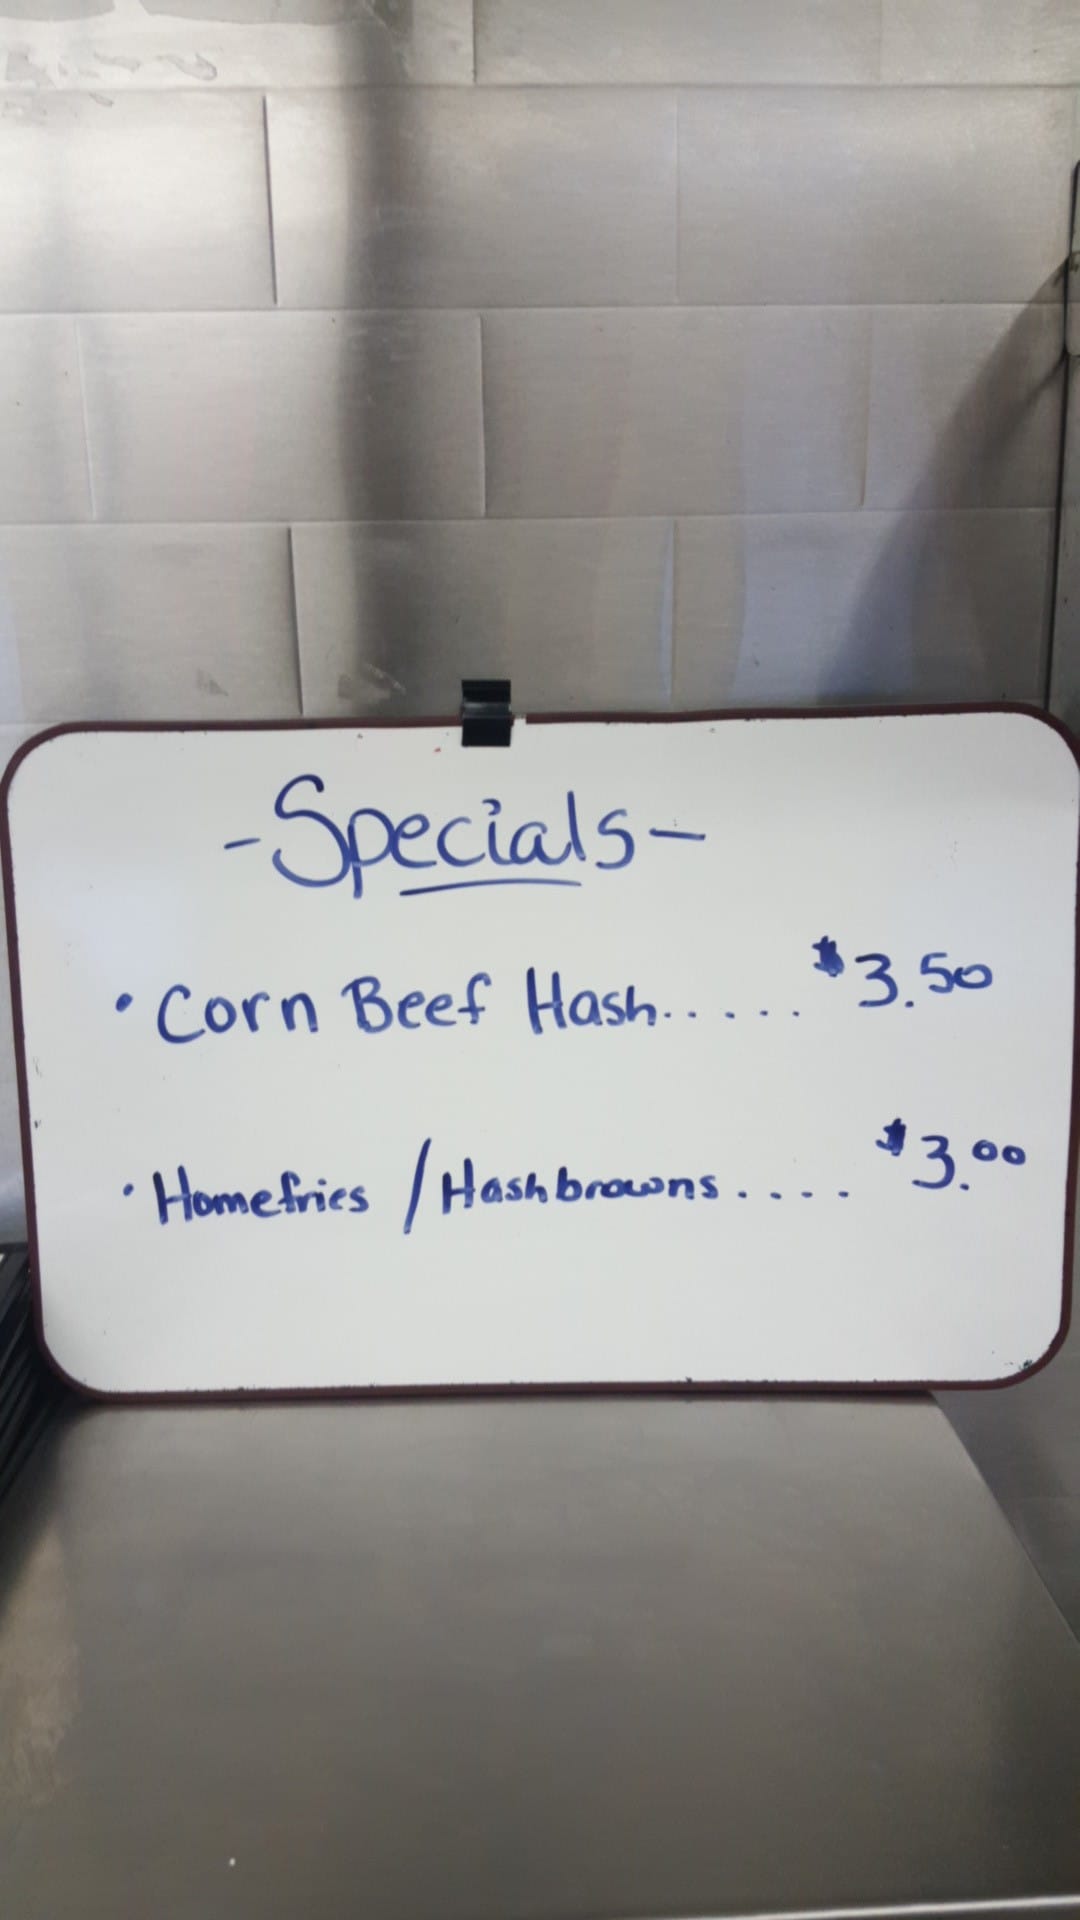 -Specials-
• Corn Beef Hash..... $3.50
• Homefries / Hashbrowns.... $3.00